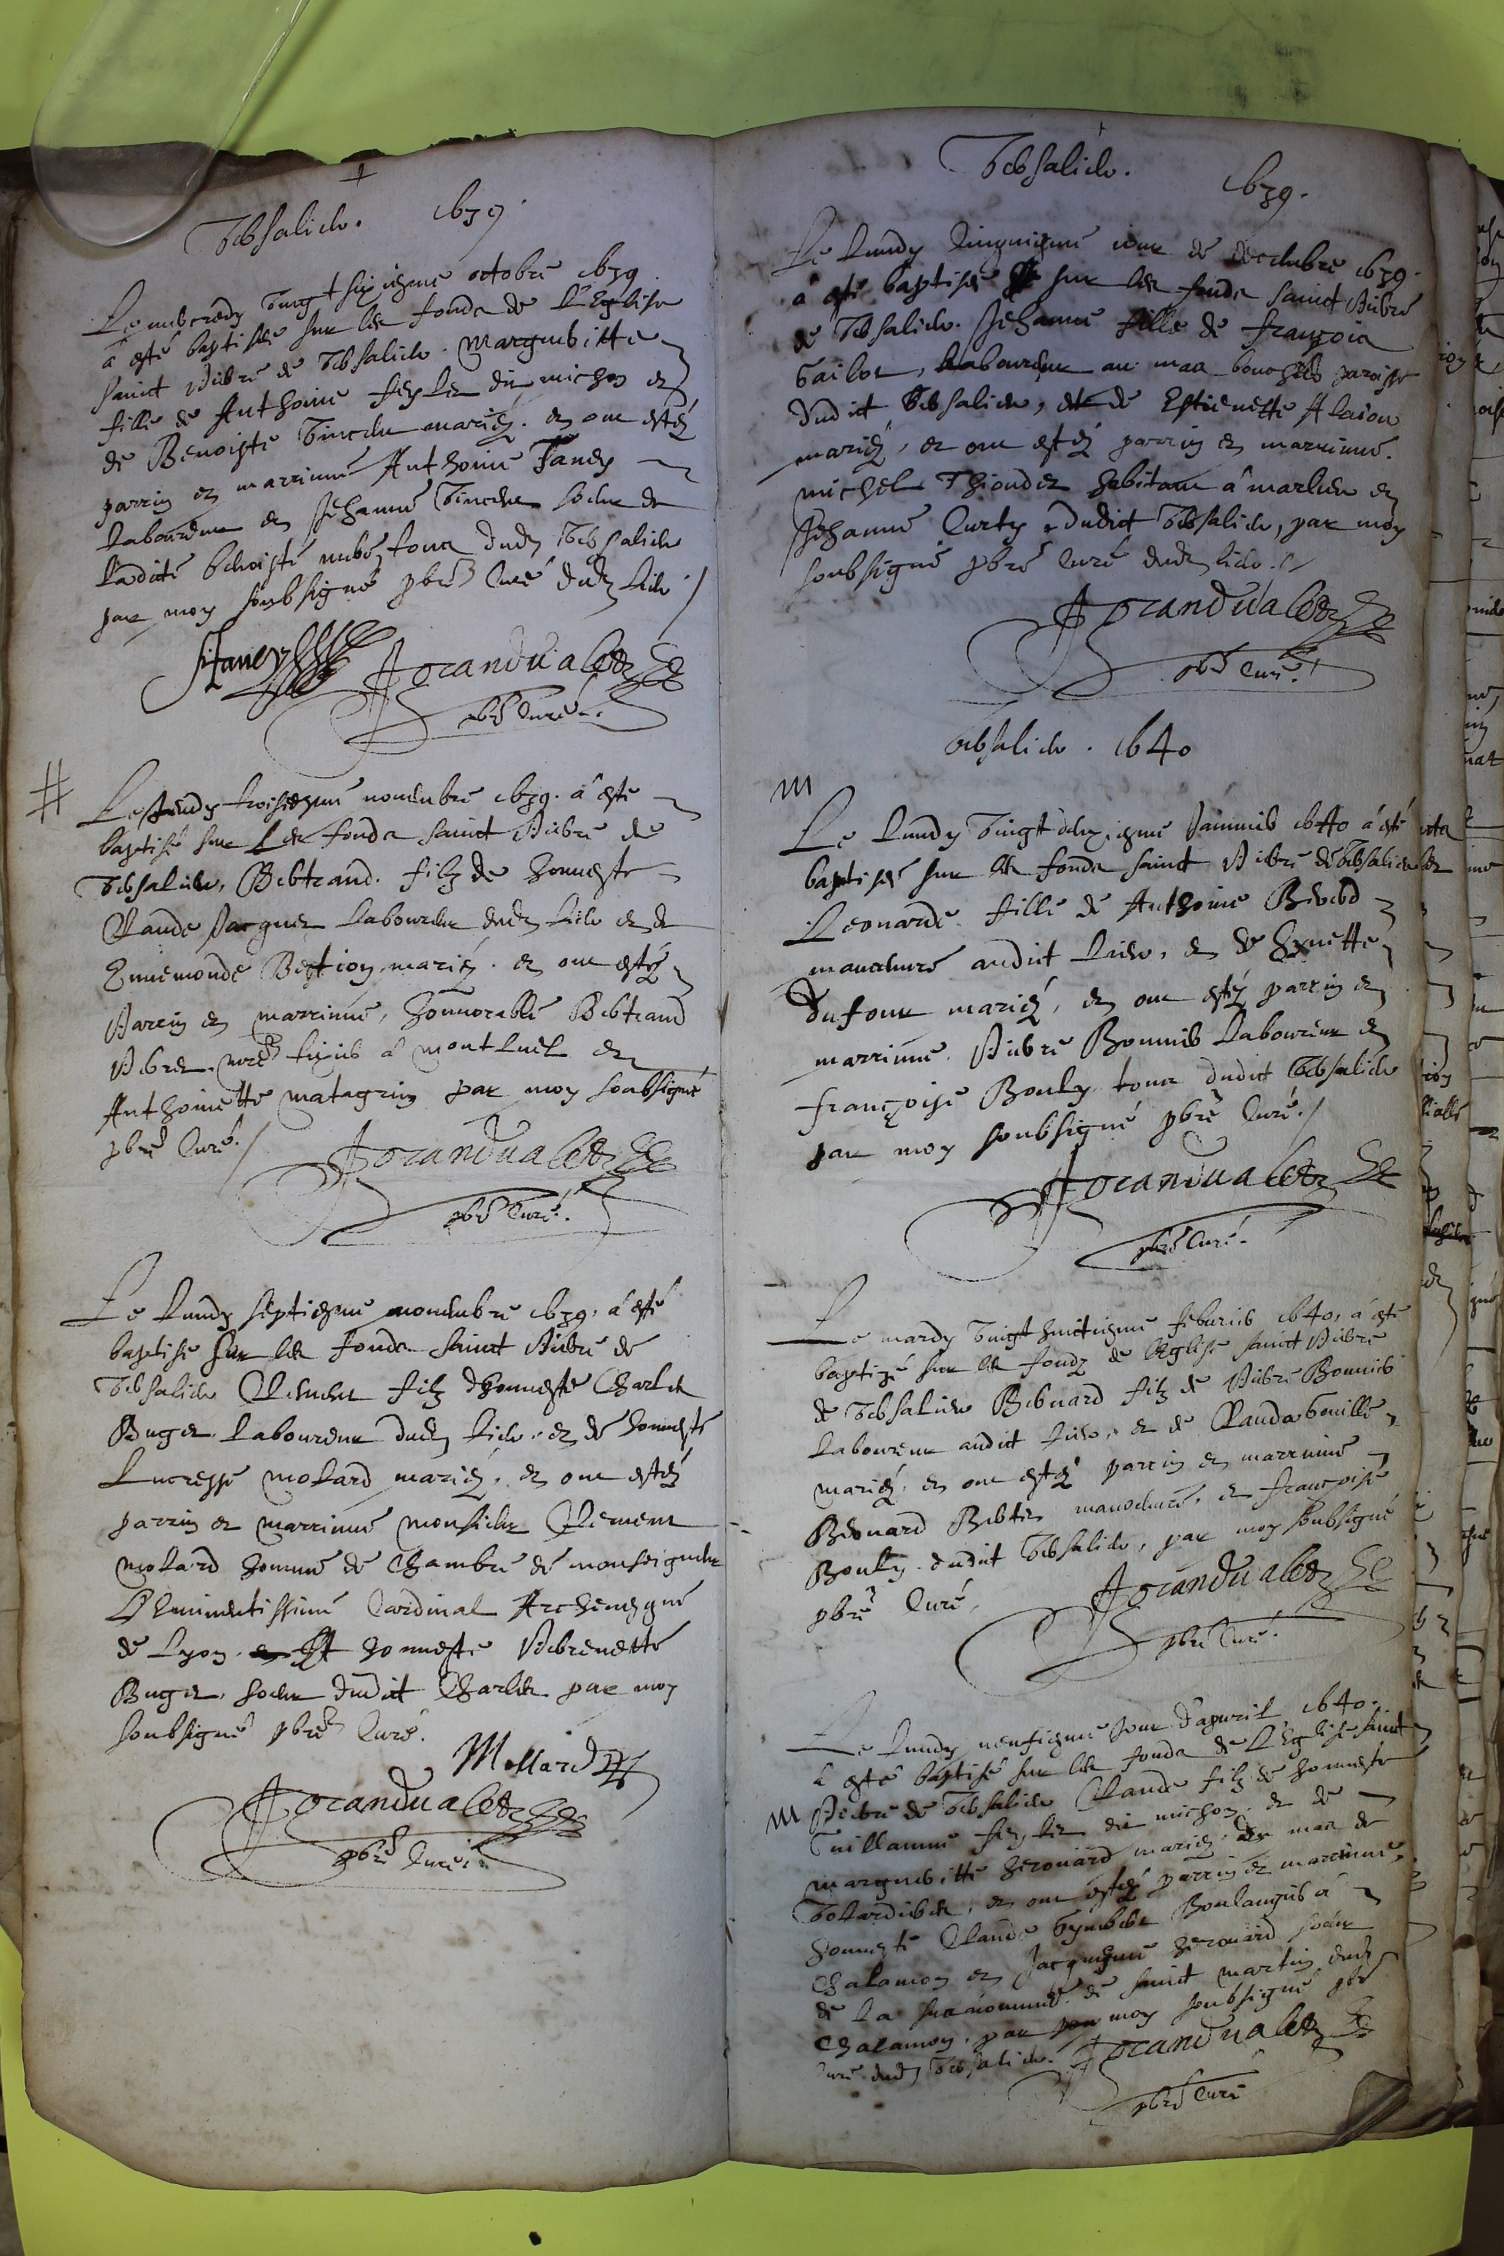 Versalieu. 1639.
Le mercredy vingt sixiesme octobre 1639.
a esté baptisée sur les fonds de L'Eglise
sainct Pierre de Versalieu. Margueritte
fille de Anthoine dit michon et
de Benoiste Vincen mariez. et ont estéz
parrin et marrinne Anthoine Faney
Laboureur et Jehanne Vincen soeur de
Ladite benoiste tous dud. Versalieu
par moy soubsigné pbre Curé dud. Lieu
Faney Jocanduales
pbre Curé.
Le Jeudy troisiesme novembre 1639. a esté
baptisé sur Les fonds sainct Pierre de
Versalieu, Bertrand. filz de honneste
Claude Jacques Laboureur dud. Lieu et de
Ennemonde Bestion mariez. et ont estéz
Parrin et marrinne, honnorable Bertrand
Pierre, mre à montluel et
Anthoinette matagrin par moy soubsigné
pbre Curé.
Jocanduales
pbre Curé.
Le Lundy septiesme novembre 1639. a esté
baptisé sur les fonds sainct Pierre de
Versalieu Clement filz d'honneste Charles
Buget Laboureur dud. Lieu. et de honneste
Lucresse molard mariez. et ont estéz
parrin et marrinne monsieur Clement
molard homme de Chambre de monseigneur
L'Eminentissime Cardinal Archevesque
de Lyon. Et honneste Pierrenette
Buget, soeur dudit Charles par moy
soubsigné pbre Curé.
Mollard
Jocanduales
pbre Curé.
Versalieu. 1639.
Le Lundy Cinquiesme jour de decembre 1639.
a esté baptisée sur les fonds sainct Pierre
de Versalieu. Jehanne fille de françois
Gailot, Laboureur au mas parroisse
dudit Versalieu, et de Estienette Alaion
mariez, et ont estéz parrin et marrinne.
michel Thiondet habitant à marlieu et
Jehanne Curty dudict Versalieu, par moy
soubsigné pbre Curé dud. lieu.
Jocanduales
pbre Curé.
Versalieu. 1640
Le Lundy vingt deuxiesme Janvier 1640 a esté
baptisée sur les fonds sainct Pierre de Versalieu
Leonarde fille de Anthoine Berard
manoeuvre audit Lieu, et de
Dufour mariez, et ont estéz parrin et
marrinne. Pierre Bonnier Laboureur et
françoise Bouly tous dudit Versalieu
par moy soubsigné pbre Curé.
Jocanduales
pbre Curé.
Le mardy vingt huictiesme febvrier 1640, a esté
baptizé sur les fondz de l'Eglise sainct Pierre
de Versalieu Bernard filz de Pierre Bonnier
Laboureur audit Lieu, et de Clauda
mariez, et ont estéz parrin et marrinne
Benoard manoeuvre, et françoise
Bouly dudit Versalieu, par moy soubsigné
pbre Curé.
Jocanduales
pbre Curé.
Le Lundy neufiesme Jour d'apvril 1640.
a esté baptisé sur les fonds de L'Eglise sainct
Pierre de Versalieu Claude filz de honneste
Guillaume dit michon. et de
margueritte herouard mariez. mas de
et ont estéz parrin et marrinne,
honneste Claude Boulangier à
Chalamon et Jacquesme herouard soeur
de La surnommée de sainct martin
Chalamon, par moy soubsigné pbre
Curé dud. Versalieu. Jocanduales
pbre Curé